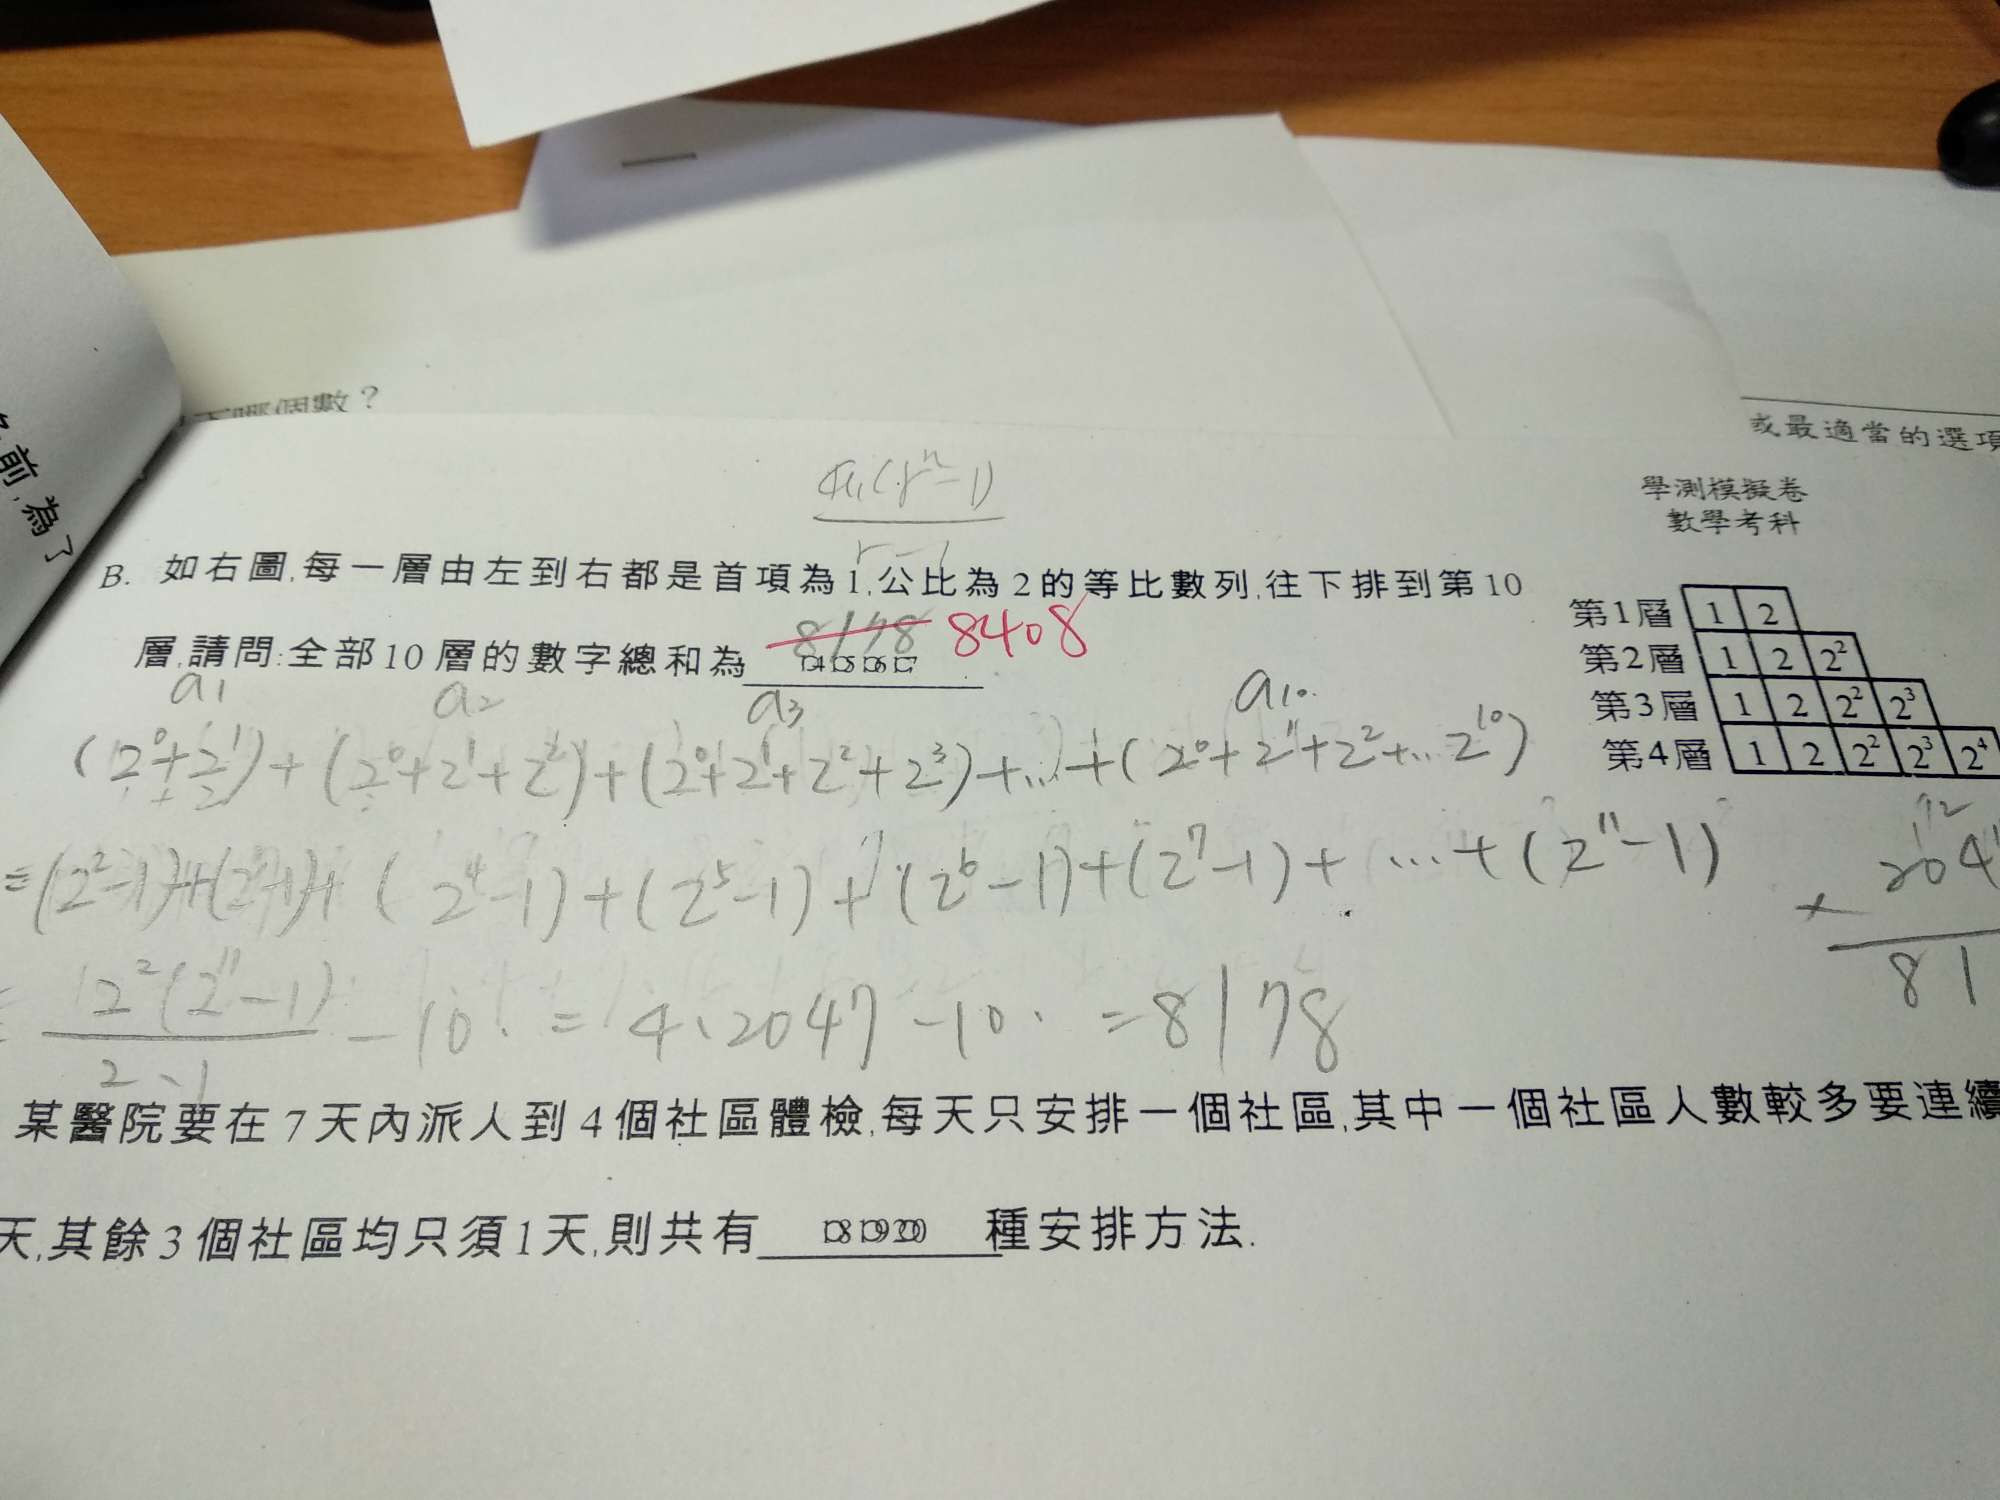 個數？
前,為了
或最適當的選項
學測模擬卷
數學考科
a₁(rⁿ-1)
r-1
B. 如右圖,每一層由左到右都是首項為1,公比為2的等比數列,往下排到第10
層,請問:全部10層的數字總和為 8178 8408
14 15 16 17
第1層 1 2
第2層 1 2 2²
第3層 1 2 2² 2³
第4層 1 2 2² 2³ 2⁴
a₁ a₂ a₃ a₁₀
(2⁰+2¹)+(2⁰+2¹+2²)+(2⁰+2¹+2²+2³)+...+(2⁰+2¹+2²+...2¹⁰)
=(2²-1)+(2³-1)+(2⁴-1)+(2⁵-1)+(2⁶-1)+(2⁷-1)+...+(2¹¹-1)
204
×
81
= 2²(2¹¹-1)
2-1
-10 = 4·2047-10 =8178
某醫院要在7天內派人到4個社區體檢,每天只安排一個社區,其中一個社區人數較多要連續
天,其餘3個社區均只須1天,則共有 18 19 20 種安排方法.